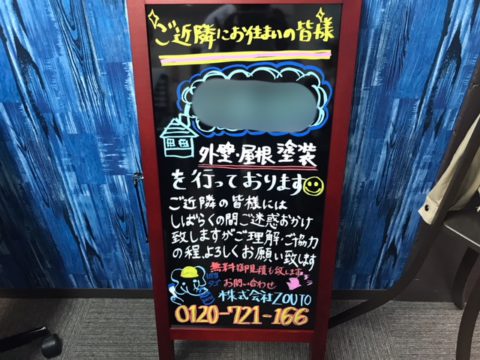 ご近隣にお住まいの皆様
外壁・屋根塗装
を行っております
ご近隣の皆様には
しばらくの間ご迷惑おかけ
致しますがご理解・ご協力
の程、よろしくお願い致します
無料御見積も致します
お問い合わせ
株式会社ZOUTO
0120-721-166